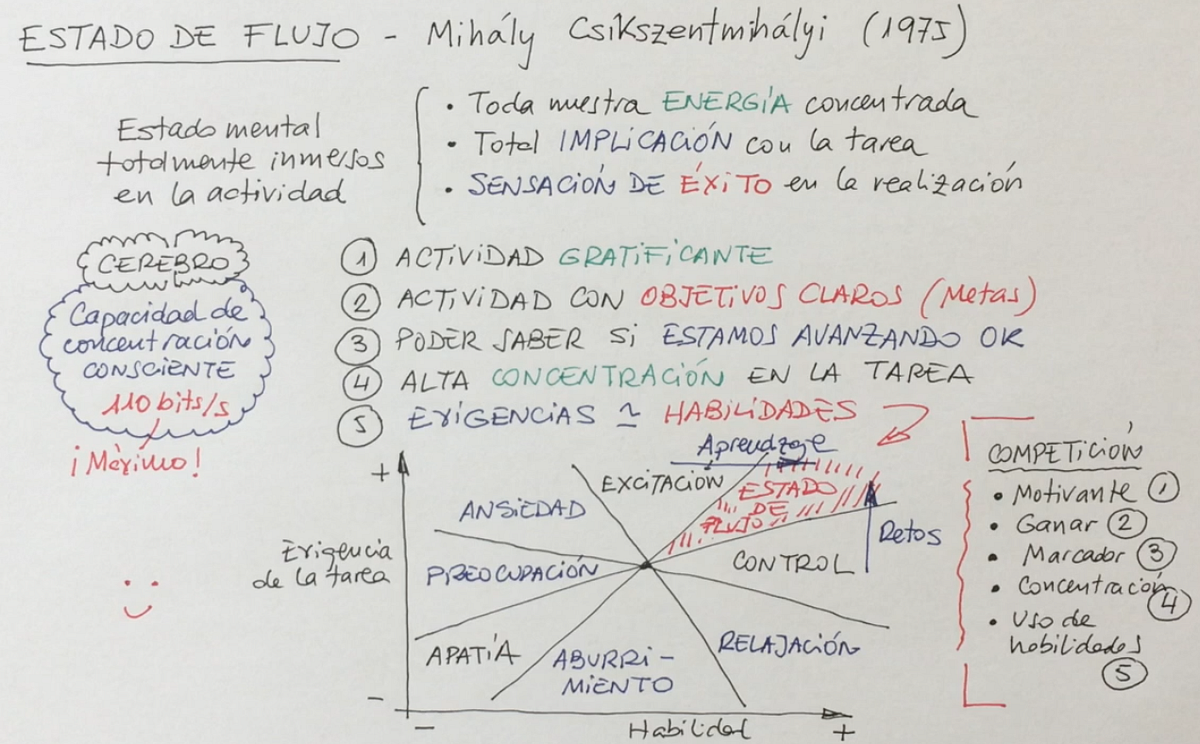 ESTADO DE FLUJO - Mihály Csikszentmihályi (1975)
Estado mental
totalmente inmersos
en la actividad
• Toda nuestra ENERGÍA concentrada
• Total IMPLICACIÓN con la tarea
• SENSACIÓN DE ÉXITO en la realización
CEREBRO
Capacidad de
concentración
CONSCIENTE
110 bits/s
¡Máximo!
1 ACTIVIDAD GRATIFICANTE
2 ACTIVIDAD CON OBJETIVOS CLAROS (Metas)
3 PODER SABER SI ESTAMOS AVANZANDO OK
4 ALTA CONCENTRACIÓN EN LA TAREA
5 EXIGENCIAS ≃ HABILIDADES
+
Exigencia
de la tarea
-
ANSIEDAD
EXCITACIÓN
Aprendizaje
ESTADO
DE
FLUJO
Retos
PREOCUPACIÓN
CONTROL
APATÍA
ABURRI-
MIENTO
RELAJACIÓN
-
Habilidad
+
COMPETICIÓN
• Motivante 1
• Ganar 2
• Marcador 3
• Concentración 4
• Uso de
habilidades
5